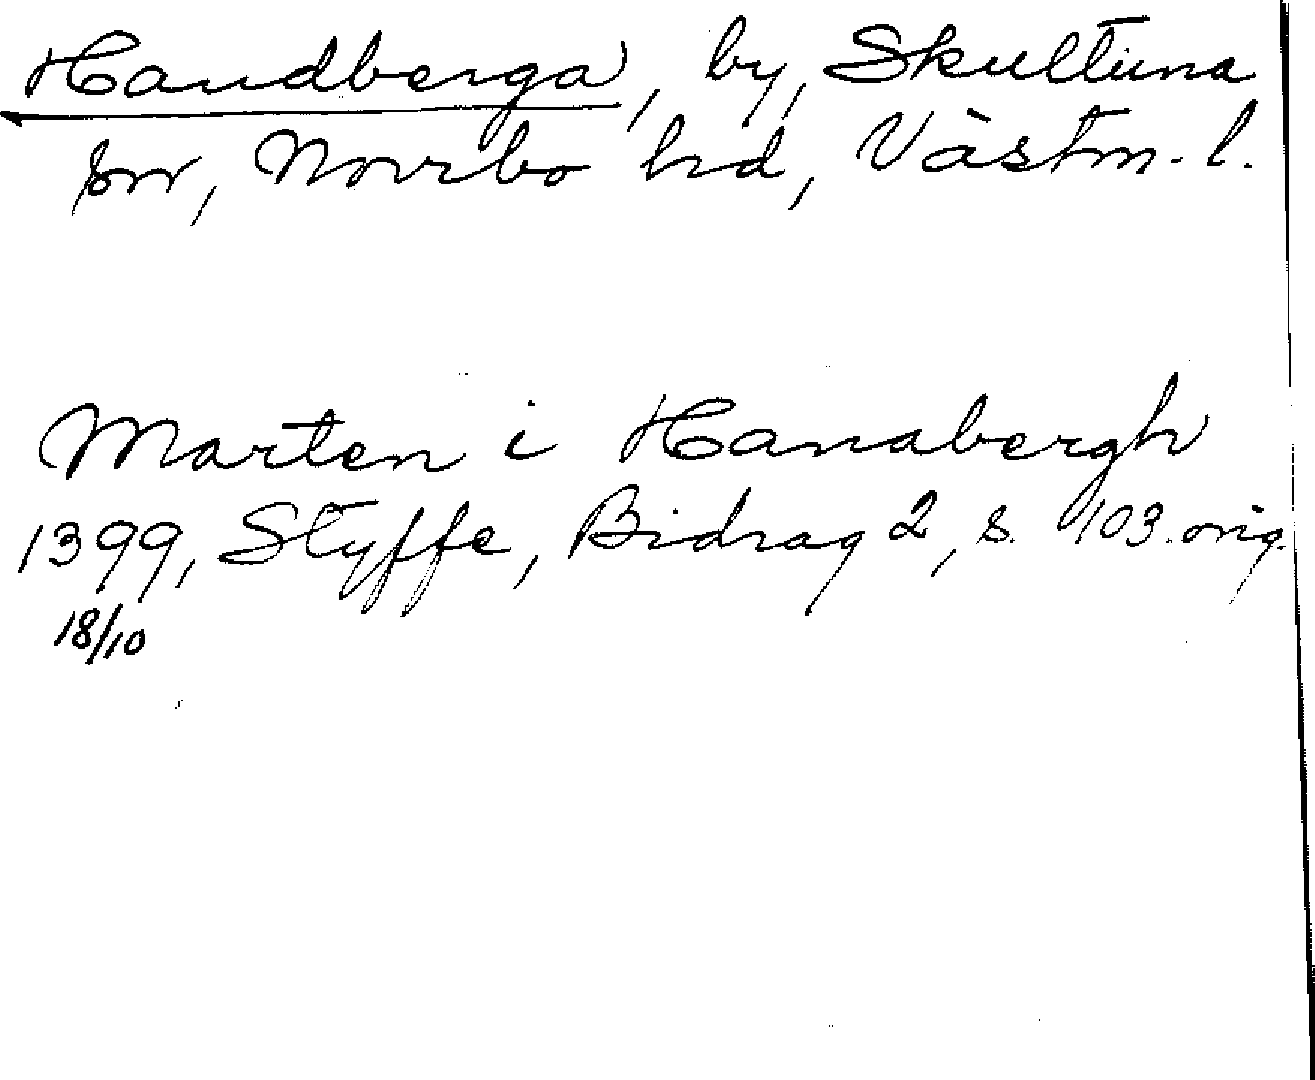 Handberga, by, Skultuna
sn, Norrbo hd, Västm. l.
Marten i Hanabergh
1399, Styffe, Bidrag 2, s. 103. orig.
18/10